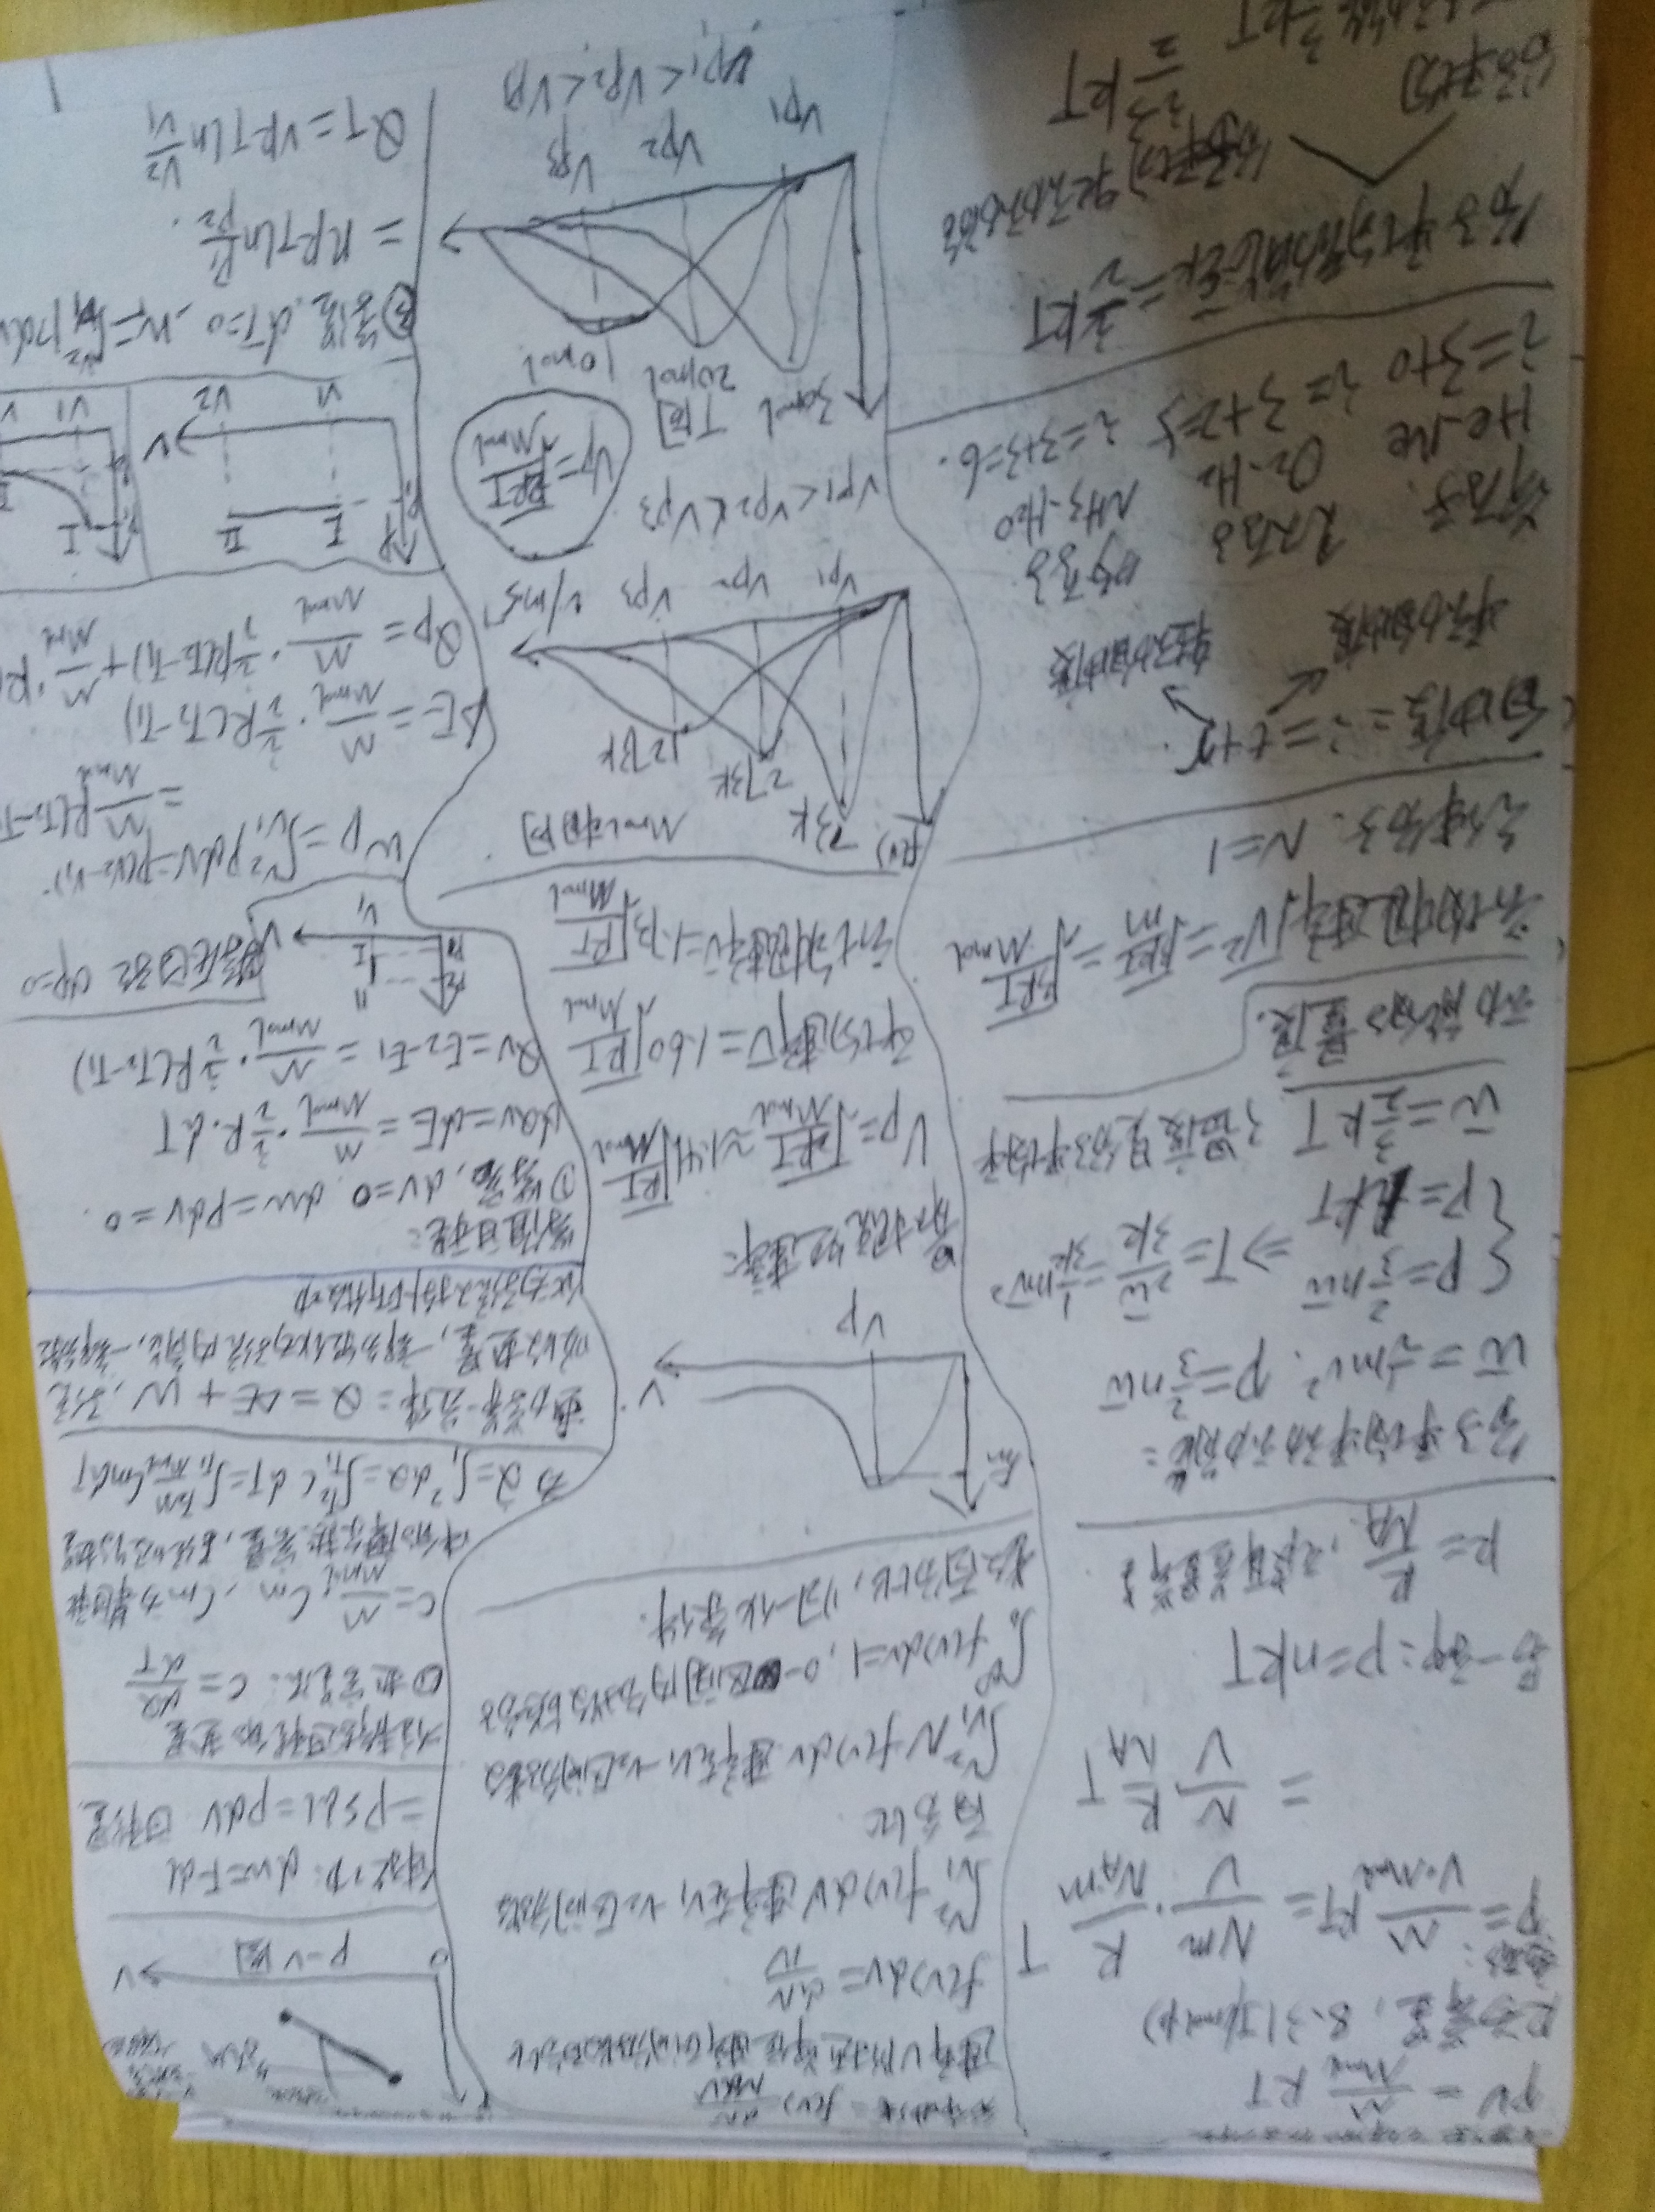 PV = M/Mmol RT
R为常量, 8.31J/(mol·k)
变形:
P = M/(V·Mmol) RT = Nm/V · R/(NA·m) T
= N/V R/NA T
另一种: P=nkT
k = R/NA, 玻耳兹曼常量.
分子平均平动动能:
w̄ = ½mv². P=⅔nw̄
{ P=⅔nw̄
P=nkT ⇒ T= 2w̄/3k = 1/3k mv̄²
w̄ = 3/2 kT ; 温度是分子平均平
动能的量度.
方均根速率 √v̄² = √(3kT/m) = √(3RT/Mmol)
N=1
自由度: i=t+r.
平动自由度 转动自由度
单原子. 双原子 多原子
He、Ne O2、H2 NH3、H2O
i=3+0 i=3+2=5 i=3+3=6.
分子平均动能 ε̄k = i/2 kT
分子平均 平均转动动能
(i-3)/2 kT
3/2 kT
f(v) dN/NdV
速率V附近单位速率区间分子数百分比
f(v)dv = dN/N
∫v1^v2 f(v)dV 速率在v1-v2区间分子数
百分比
∫v1^v2 N f(v)dv 速率在v1-v2区间分子数
∫0^∞ f(v)dv=1, 0-∞区间内分子数占总分子
数百分比, 归一化条件.
V
Vp
最概然速率:
Vp = √(2RT/Mmol) ≈ 1.41√(RT/Mmol)
平均速率 v̄ = 1.60√(RT/Mmol)
方均根速率 v̄ = 1.73√(RT/Mmol)
f(v) 73k Mmol相同
273k 1273k
Vp1 Vp2 Vp3 v/ms⁻¹
Vp1<Vp2<Vp3
Vp=√(2RT/Mmol)
30mol T同
20mol 10mol
Vp1 Vp2 Vp3
Vp1<Vp2<Vp3
P
0 P-V图 V
体积功: dw=Fdl
=PSdl=PdV 过程量
准静态过程的热量
①热容量法: C= dQ/dT
C = M/Mmol Cm, Cm为某过程
中的摩尔热容量, 系统吸收的热量
为 Q=∫1^2 dQ=∫T1^T2 C dT=∫T1^T2 M/Mmol CmdT
热力学第一定律: Q=ΔE+W, 系统
吸收热量, 一部分转化为系统内能, 一部分转
化为系统对外所做功
等值过程:
①等容, dV=0 dw=PdV=0.
dQv=dE = M/Mmol · i/2 R·dT
Qv=E2-E1 = M/Mmol · i/2 R(T2-T1)
P2 II
P1 I
V1 V
等压过程 dp=0
Wp=∫V1^V2 PdV=P(V2-V1)
= M/Mmol R(T2-T
ΔE = M/Mmol · i/2 R(T2-T1)
Qp = M/Mmol · i/2 R(T2-T1) + M/Mmol · R(
P I II
V1 V2 V
I
V1
③等温, dT=0, W=∫V1^V2 Pdv
= nRTln P1/P2.
QT=VRTln V2/V1